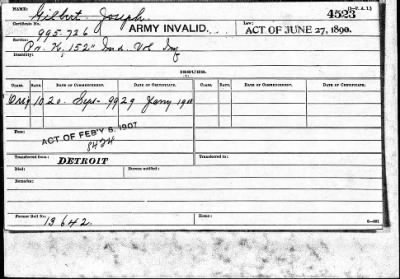 (3-7. A. 1.)
NAME: Gilbert Joseph. 4523
Certificate No. 995.726 ARMY INVALID. Law: ACT OF JUNE 27, 1890.
Service: Pr. K, 152" Ind. Vol Inf
Disability:
ISSUES.
CLASS. RATE. DATE OF COMMENCEMENT. DATE OF CERTIFICATE. CLASS. RATE. DATE OF COMMENCEMENT. DATE OF CERTIFICATE.
Orig 10 20. Sept- 99 29 Jany 1900
From:
ACT OF FEB'Y 6, 1907
8424
Transferred from: DETROIT Transferred to:
Died: Bureau notified:
Remarks:
Former Roll No. 13642. Home: